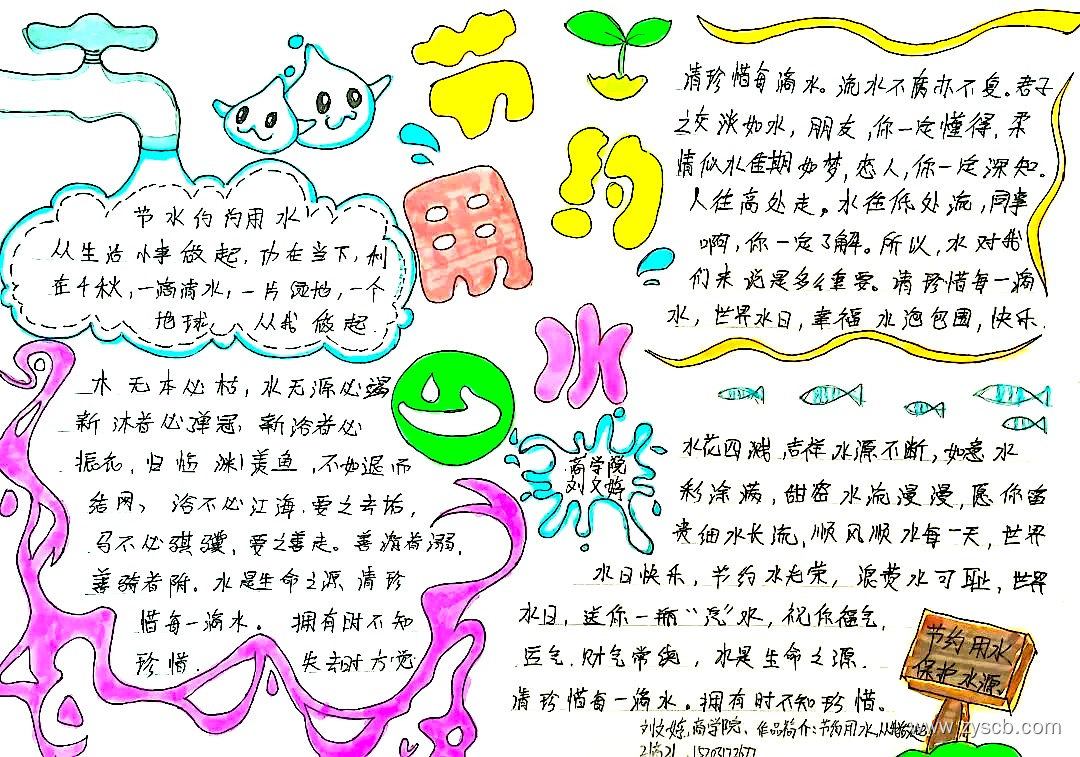 节约用水
节水约约用水
从生活小事做起，功在当下，利
在千秋，一滴滴水，一片绿地，一个
地球 从我做起.
木无本必枯，水无源必竭
新沐者必弹冠，新浴者必
振衣，归临渊羡鱼，不如退而
结网， 浴不必江海，要之去垢，
马不必骐骥，要之善走。善游者溺，
善骑者附。水是生命之源 请珍
惜每一滴水。 拥有时不知
珍惜. 失去时方觉
请珍惜每滴水。流水不腐亦不臭。君子
之交淡如水，朋友，你一定懂得，柔
情似水佳期如梦，恋人，你一定深知。
人往高处走。水往低处流，同事
啊，你一定了解。所以，水对我
们来说是多么重要。请珍惜每一滴
水，世界水日，幸福水泡包围，快乐.
水花四溅，吉祥水源不断，如意水
彩涂满，甜密水流漫漫，愿你留
衷细水长流，顺风顺水每一天，世界
水日快乐，节约水光荣，浪费水可耻，世界
水日，送你一瓶“汽”水，祝你福气，
运气.财气常绕，水是生命之源.
请珍惜每一滴水。拥有时不知珍惜。
商学院
刘文婷
节约用水
保护水源
刘文婷，商学院、作品简介：节约用水，从
www.zyscb.com